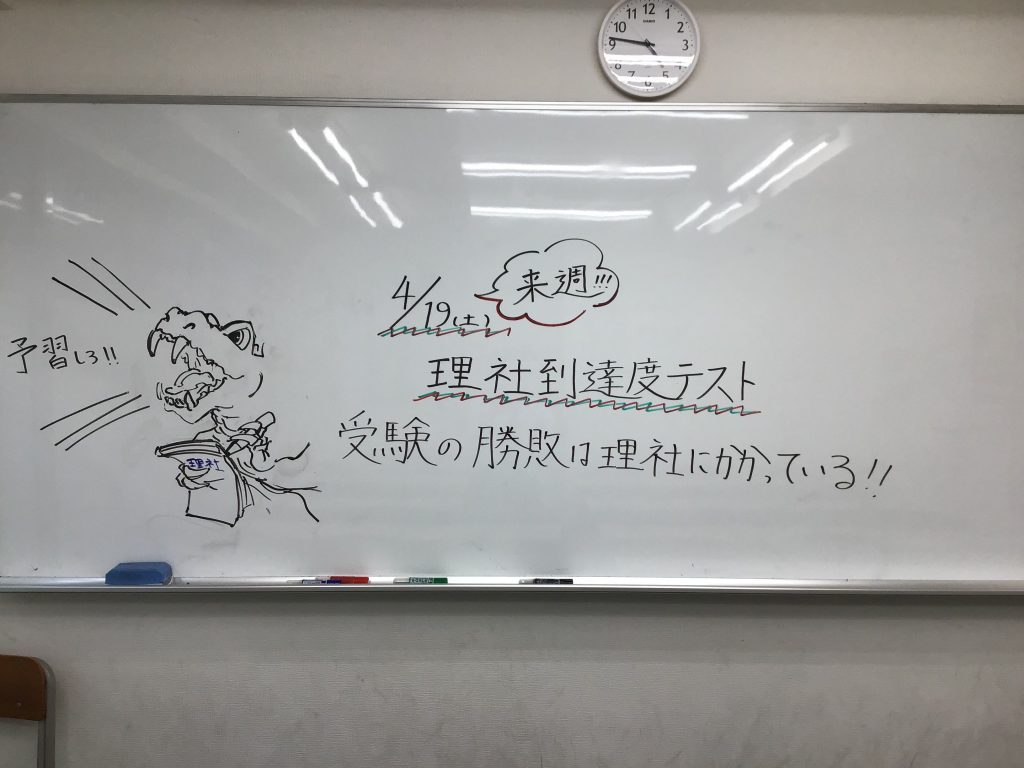 12
11
10
9
8
7
6
5
3
2
1
CASIO
来週!!!
4/19(土)
予習しろ!!
理社到達度テスト
受験の勝敗は理社にかかっている!!
理社